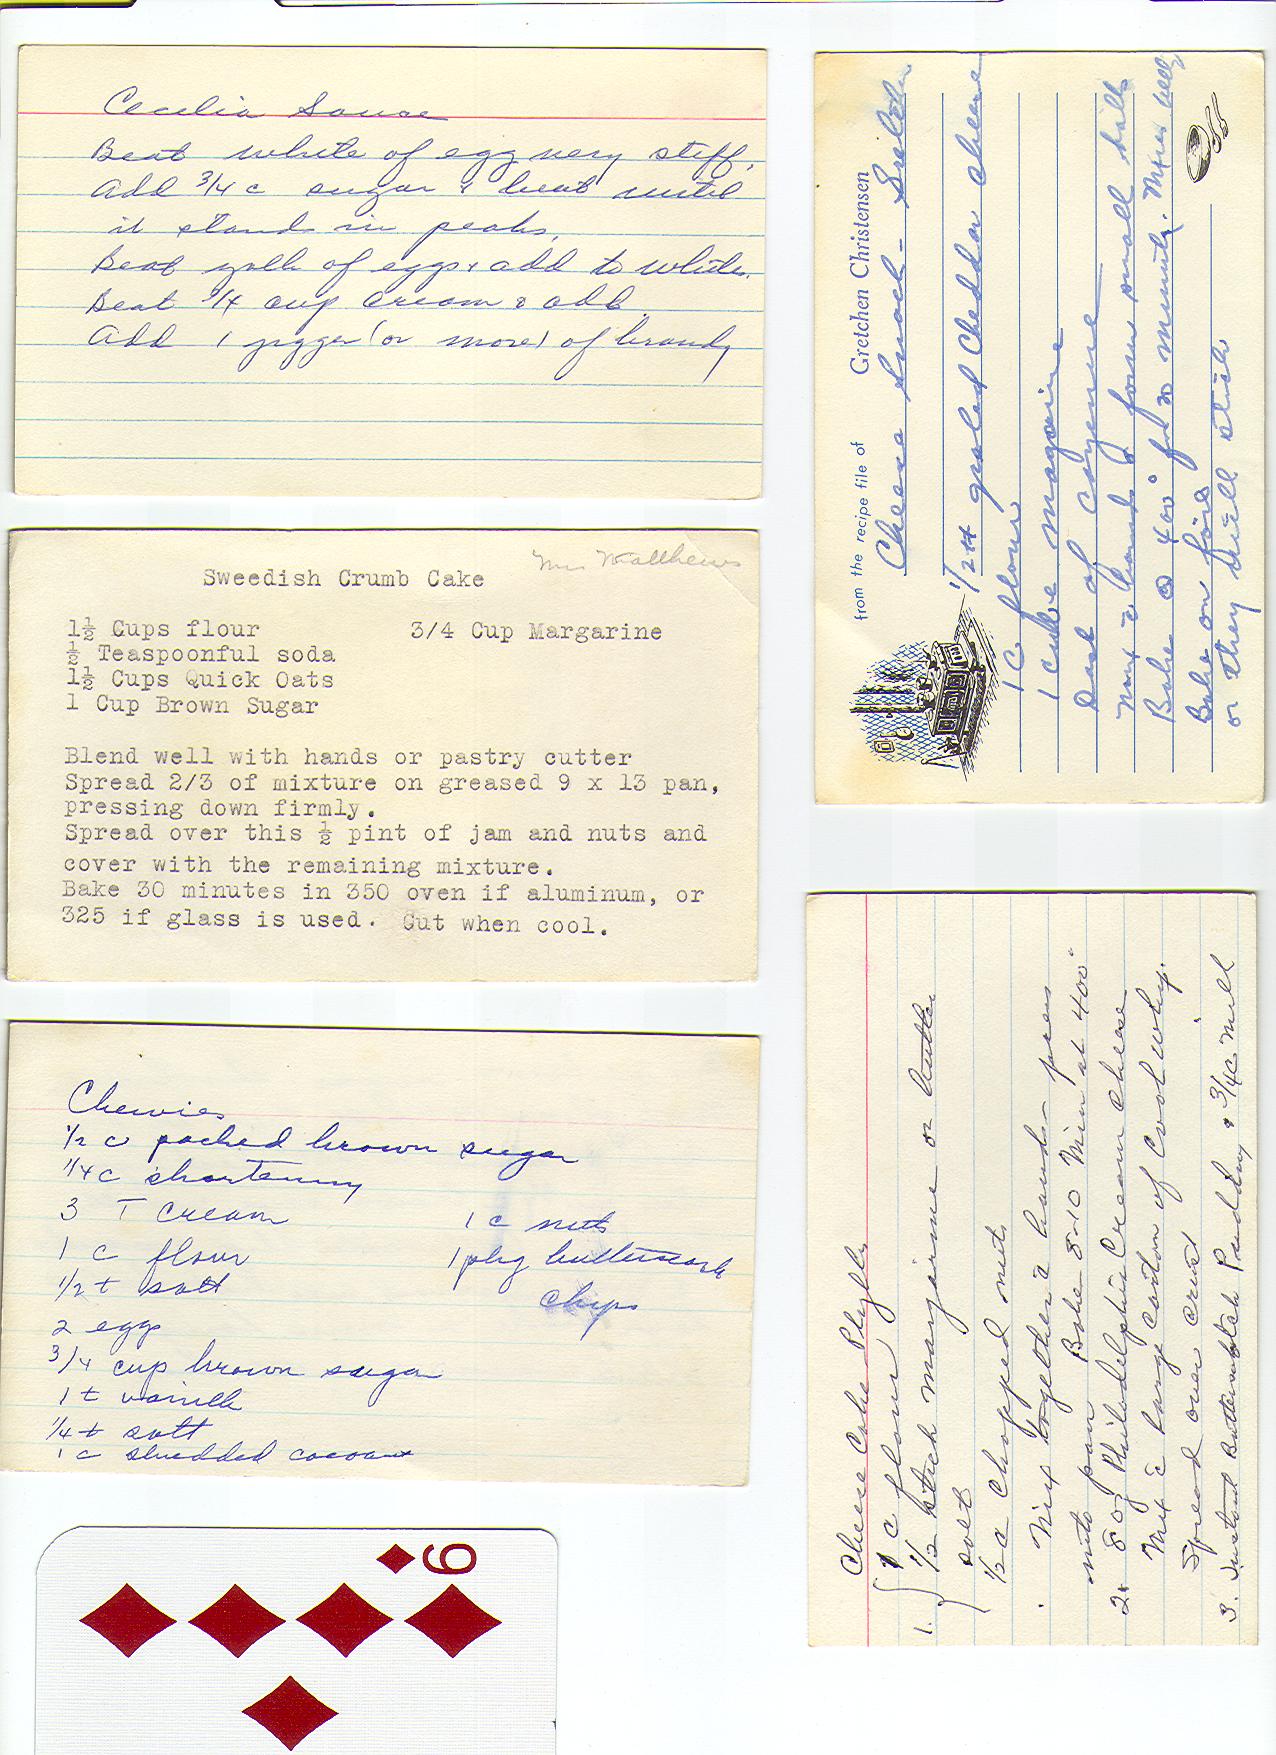 Cecelia Sauce
Beat white of egg very stiff,
Add 3/4 c sugar & beat until
it stands in peaks.
Beat yolk of eggs & add to white.
Beat 3/4 cup cream & add.
Add 1 jigger (or more) of brandy
Mrs Matthews
Sweedish Crumb Cake
1½ Cups flour 3/4 Cup Margarine
½ Teaspoonful soda
1½ Cups Quick Oats
1 Cup Brown Sugar
Blend well with hands or pastry cutter
Spread 2/3 of mixture on greased 9 x 13 pan,
pressing down firmly.
Spread over this ½ pint of jam and nuts and
cover with the remaining mixture.
Bake 30 minutes in 350 oven if aluminum, or
325 if glass is used. Cut when cool.
Chewies
1/2 c packed brown sugar
1/4 c shortening
3 T cream 1 c nuts
1 c flour 1 pkg butterscoth
1/2 t salt chips
2 eggs
3/4 cup brown sugar
1 t vanilla
1/4 t salt
1 c shredded cocoanut
9
from the recipe file of Gretchen Christensen
Cheese Smack -
1/2 # grated Cheddar cheese
1 c. flour
1 cube magarine
Dash of cayenne
Mix c̄ hands & form small balls
Bake @ 400° for 20 minutes. Mixes well
Bake on foil
or they will stick
Cheese Cake Phylly
1. 1 c flour
1/2 stick margarine or butter
salt
1/2 c chopped nuts
Mix together c̄ hands - press
into pan Bake 8-10 Min at 400°
2. 8 oz Philadelphia Cream Cheese
Mix c̄ large carton of Cool whip.
Spread over crust
3. Instant Butterscotch Pudding & 3/4c Milk